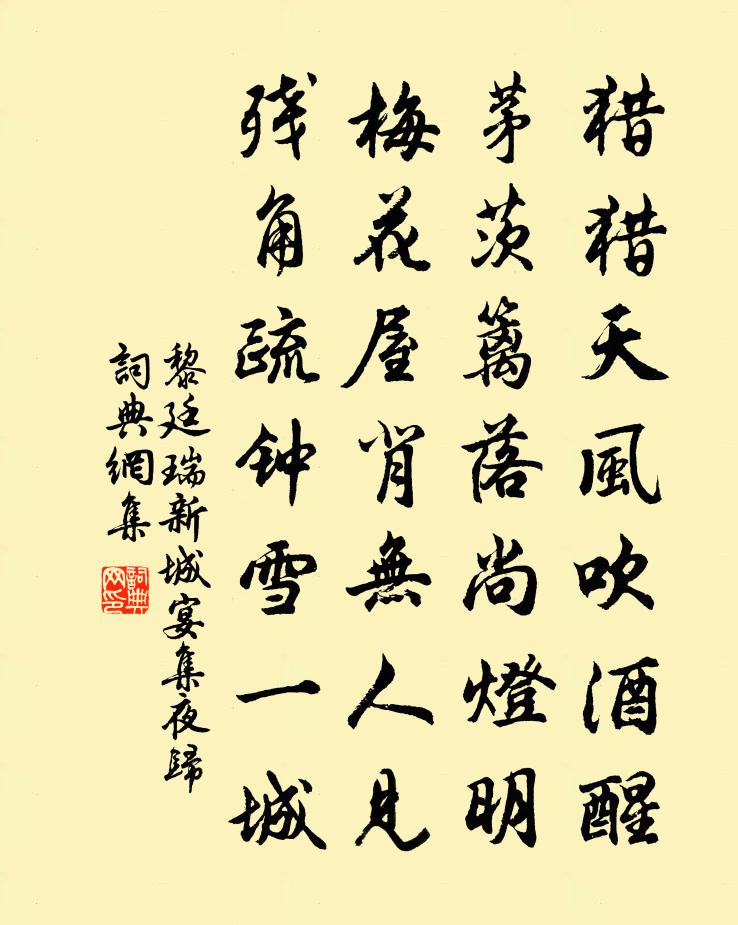 猎猎天風吹酒醒
茅茨篱落尚燈明
梅花屋背無人見
残角疏钟雪一城
黎廷瑞新城宴集夜歸
詞典網集
詞典
网印